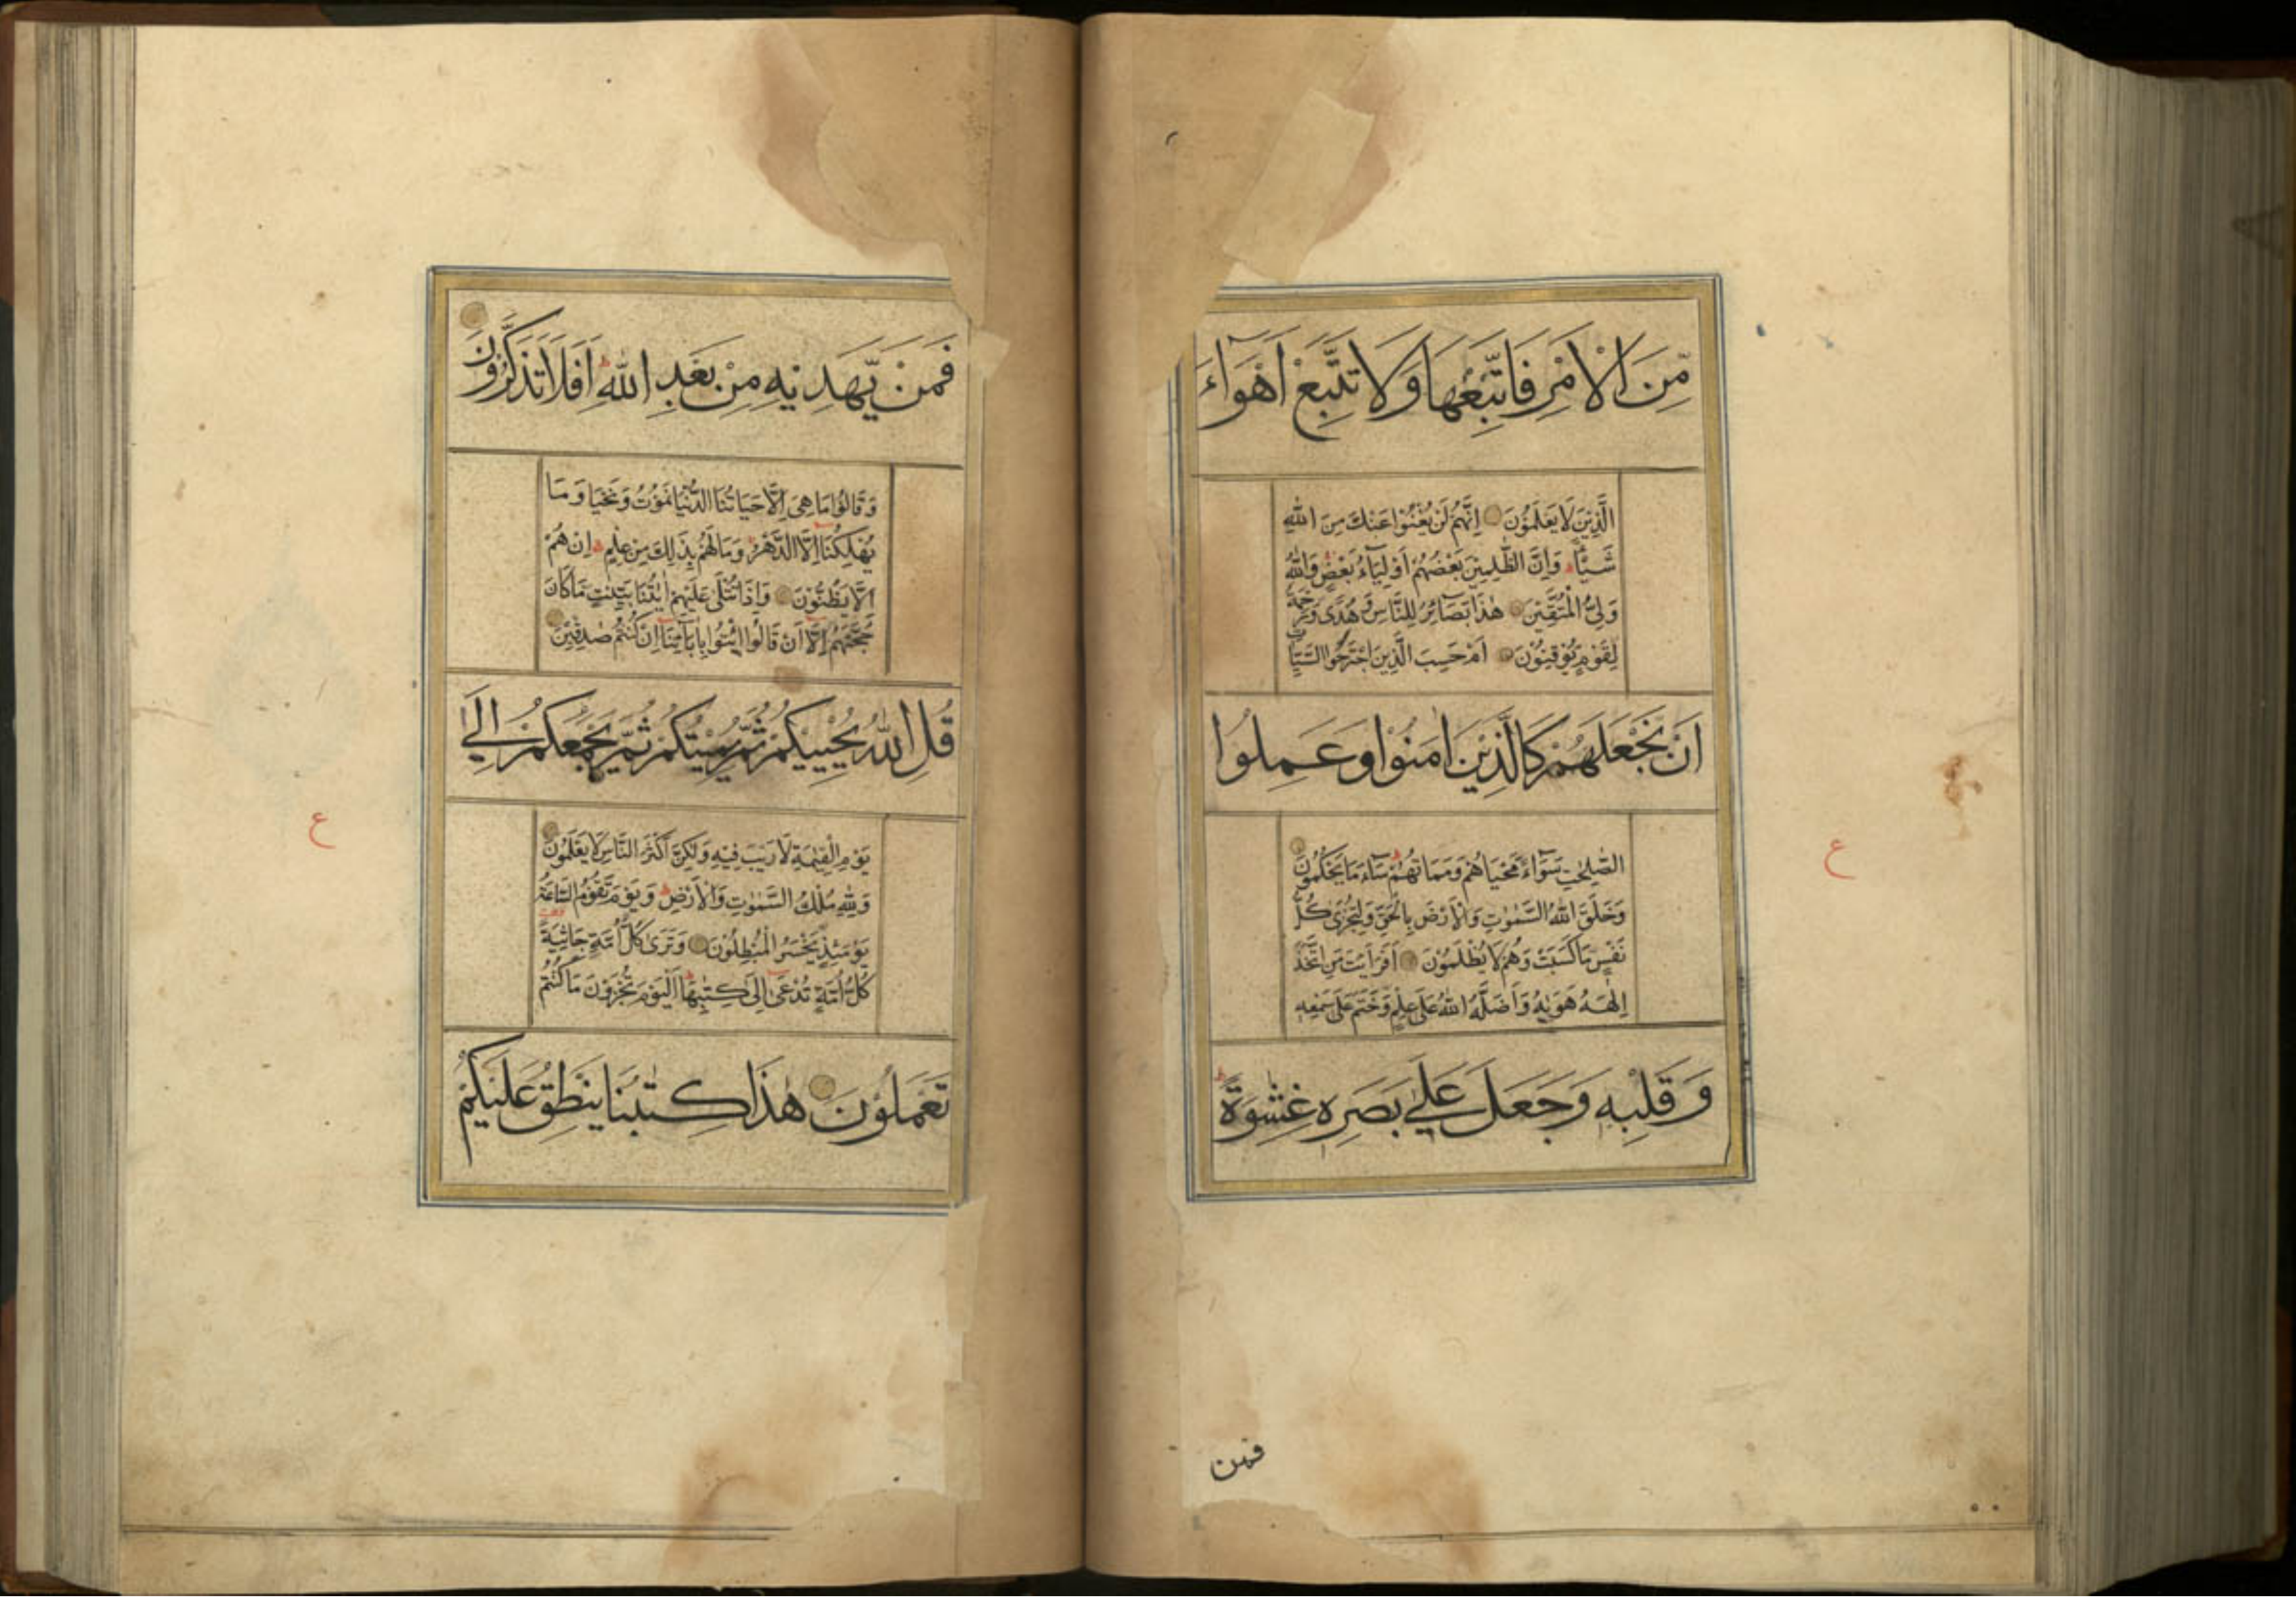 مِّنَ الْاَمْرِ فَاتَّبِعْهَا وَلَا تَتَّبِعْ اَهْوَآءَ
الَّذِيْنَ لَا يَعْلَمُوْنَ اِنَّهُمْ لَنْ يُّغْنُوْا عَنْكَ مِنَ اللّٰهِ
شَيْـًٔا ط وَاِنَّ الظّٰلِمِيْنَ بَعْضُهُمْ اَوْلِيَآءُ بَعْضٍ وَاللّٰهُ
وَلِىُّ الْمُتَّقِيْنَ هٰذَا بَصَآئِرُ لِلنَّاسِ وَهُدًى وَّرَحْمَةٌ
لِّقَوْمٍ يُّوْقِنُوْنَ اَمْ حَسِبَ الَّذِيْنَ اجْتَرَحُوا السَّيِّاٰتِ
اَنْ نَّجْعَلَهُمْ كَالَّذِيْنَ اٰمَنُوْا وَعَمِلُوا
الصّٰلِحٰتِ سَوَآءً مَّحْيَاهُمْ وَمَمَاتُهُمْ ط سَآءَ مَا يَحْكُمُوْنَ
ع
وَخَلَقَ اللّٰهُ السَّمٰوٰتِ وَالْاَرْضَ بِالْحَقِّ وَلِتُجْزٰى كُلُّ
نَفْسٍ بِمَا كَسَبَتْ وَهُمْ لَا يُظْلَمُوْنَ اَفَرَاَيْتَ مَنِ اتَّخَذَ
اِلٰهَهٗ هَوٰيهُ وَاَضَلَّهُ اللّٰهُ عَلٰى عِلْمٍ وَّخَتَمَ عَلٰى سَمْعِهٖ
وَقَلْبِهٖ وَجَعَلَ عَلٰى بَصَرِهٖ غِشٰوَةً ط
فمن
فَمَنْ يَّهْدِيْهِ مِنْ بَعْدِ اللّٰهِ ط اَفَلَا تَذَكَّرُوْنَ
وَقَالُوْا مَا هِىَ اِلَّا حَيَاتُنَا الدُّنْيَا نَمُوْتُ وَنَحْيَا وَمَا
يُهْلِكُنَا اِلَّا الدَّهْرُ وَمَا لَهُمْ بِذٰلِكَ مِنْ عِلْمٍ اِنْ هُمْ
اِلَّا يَظُنُّوْنَ وَاِذَا تُتْلٰى عَلَيْهِمْ اٰيٰتُنَا بَيِّنٰتٍ مَّا كَانَ
حُجَّتَهُمْ اِلَّا اَنْ قَالُوا ائْتُوْا بِاٰبَآئِنَا اِنْ كُنْتُمْ صٰدِقِيْنَ
قُلِ اللّٰهُ يُحْيِيْكُمْ ثُمَّ يُمِيْتُكُمْ ثُمَّ يَجْمَعُكُمْ اِلٰى
يَوْمِ الْقِيٰمَةِ لَا رَيْبَ فِيْهِ وَلٰكِنَّ اَكْثَرَ النَّاسِ لَا يَعْلَمُوْنَ
ع
وَلِلّٰهِ مُلْكُ السَّمٰوٰتِ وَالْاَرْضِ ط وَيَوْمَ تَقُوْمُ السَّاعَةُ
يَوْمَئِذٍ يَّخْسَرُ الْمُبْطِلُوْنَ وَتَرٰى كُلَّ اُمَّةٍ جَاثِيَةً
كُلُّ اُمَّةٍ تُدْعٰى اِلٰى كِتٰبِهَا اَلْيَوْمَ تُجْزَوْنَ مَا كُنْتُمْ
تَعْمَلُوْنَ هٰذَا كِتٰبُنَا يَنْطِقُ عَلَيْكُمْ